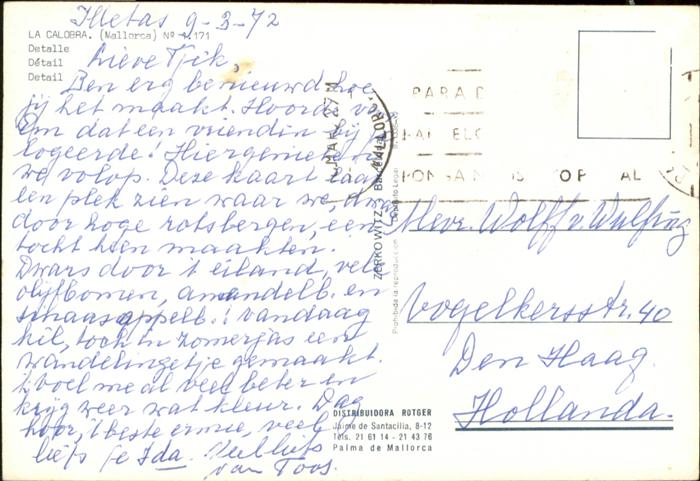 Illetas 9-3-72
LA CALOBRA. (Mallorca) Nº 171
Detalle
Détail
Detail
Lieve Tjik,
Ben erg benieuwd hoe
jij het maakt. Hoorde v.
Om dat een vriendin bij je
logeerde! Hier genieten
we volop. Deze kaart laat
een plek zien waar we, dwars
door hoge rotsbergen, een
tocht heen maakten.
Dwars door 't eiland, veel
olijfbomen, amandelb. en
sinaasappelb.! Vandaag
kil, toch in zomerjas een
wandelingetje gemaakt.
'k Voel me al veel beter en
krijg weer wat kleur. Dag
hoor, 't beste ermee, veel
liefs je Ida. Veel liefs
van Toos.
ZERKOWITZ
Prohibida la reproducción
Depósito Legal
PARA
PONGA
Mevr. Wolff v. Wulfing
Vogelkersstr. 40
Den Haag.
Hollanda.
DISTRIBUIDORA ROTGER
Jaime de Santacilia, 8-12
Tels. 21 61 14 - 21 43 76
Palma de Mallorca